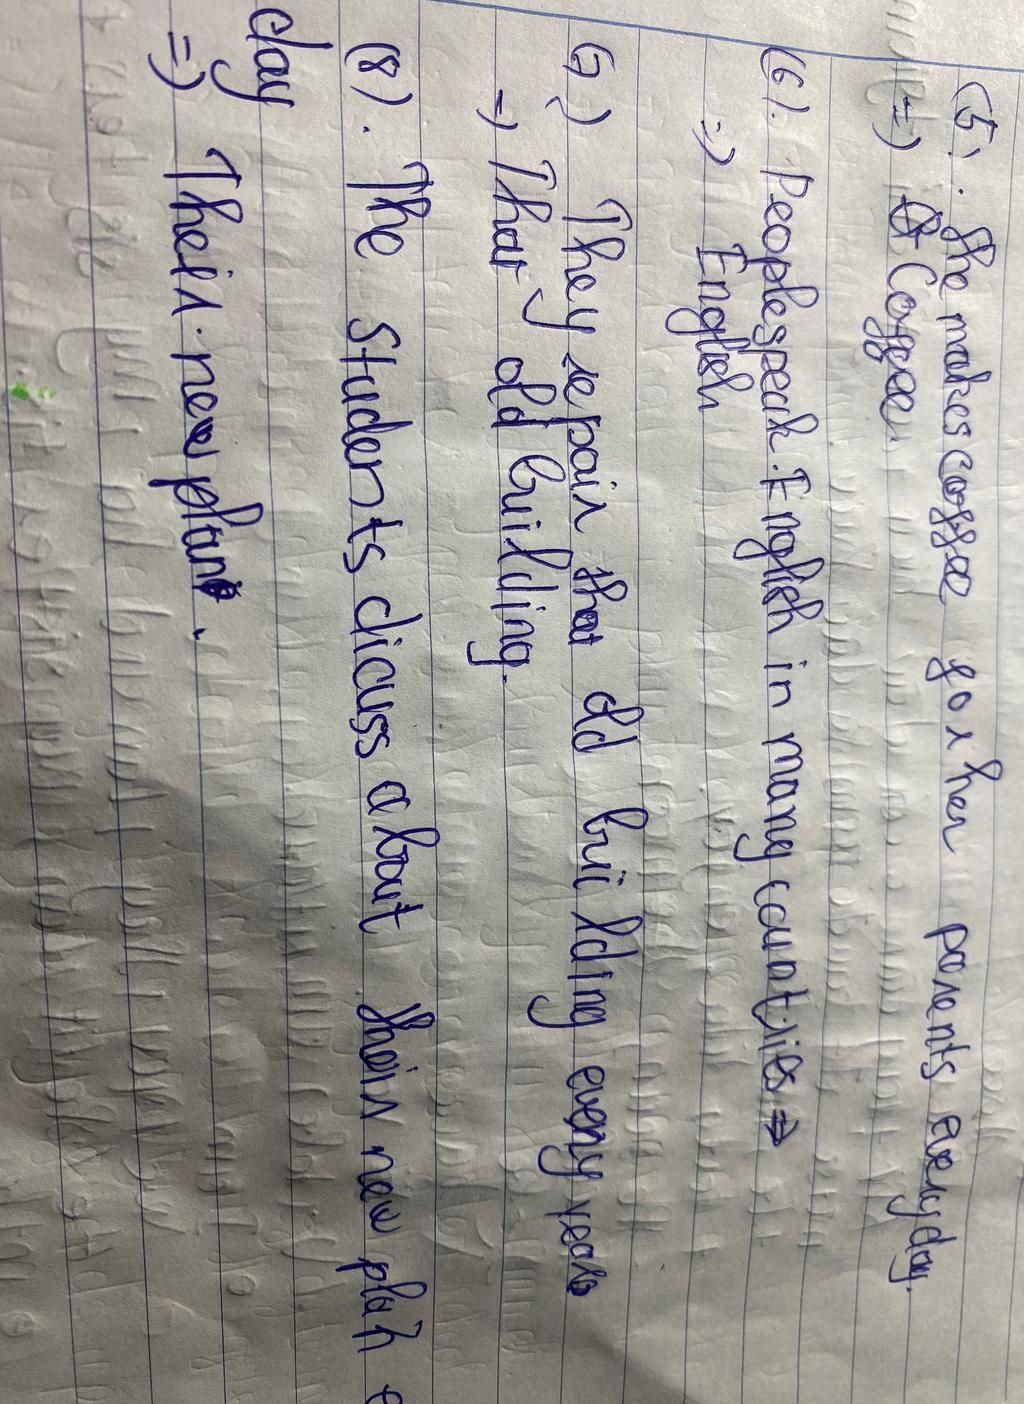 (5). She makes coffee for her parents everyday.
=) Coffee
(6). People speak English in many countries =>
=) English
7) They repair that old building every years
=) That old building.
(8). The students dicuss about their new plan e
day
=) Their new plan.